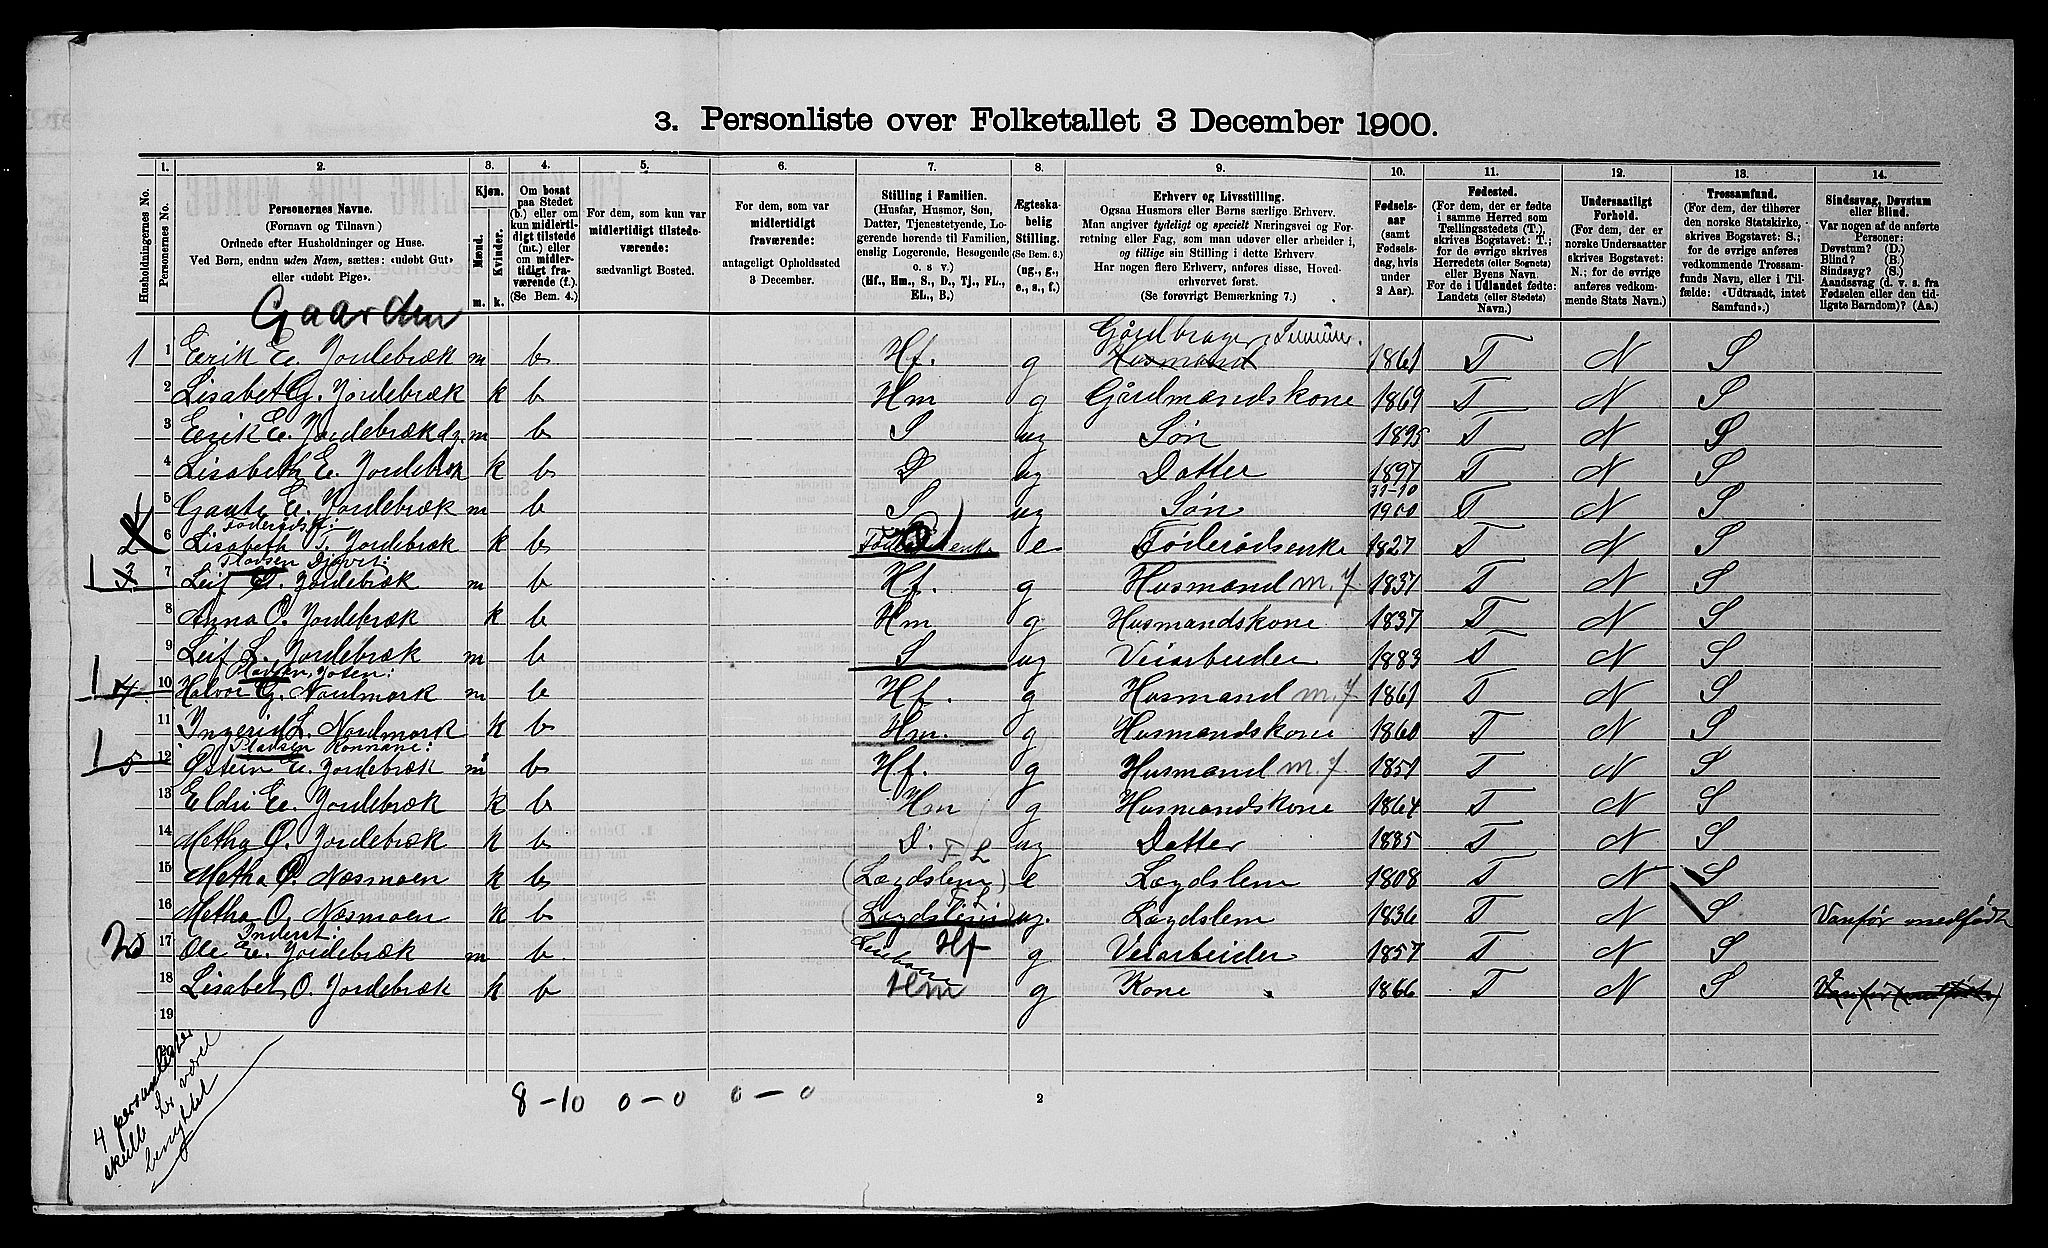 3. Personliste over Folketallet 3 December 1900.
1. 2. 3. 4. 5. 6. 7. 8. 9. 10. 11. 12. 13. 14.
Husholdningernes No.
Personernes No.
Personernes Navne.
(Fornavn og Tilnavn)
Ordnede efter Husholdninger og Huse.
Ved Børn, endnu uden Navn, sættes: «udøbt Gut»
eller «udøbt Pige».
Kjøn.
Mænd. Kvinder.
m. k.
Om bosat
paa Stedet
(b.) eller om
kun midlerti-
digt tilstede
(mt.) eller
om midler-
tidigt fra-
værende (f.).
(Se Bem. 4.)
For dem, som kun var
midlertidigt tilstede-
værende:
sædvanligt Bosted.
For dem, som var
midlertidigt
fraværende:
antageligt Opholdssted
3 December.
Stilling i Familien.
(Husfar, Husmor, Søn,
Datter, Tjenestetyende, Lo-
gerende hørende til Familien,
enslig Logerende, Besøgende
o. s. v.)
(Hf., Hm., S., D., Tj., FL.,
EL., B.)
Ægteska-
belig
Stilling.
(Se Bem. 6.)
(ug., g.,
e., s., f.)
Erhverv og Livsstilling.
Ogsaa Husmors eller Børns særlige Erhverv.
Man angiver tydeligt og specielt Næringsvei og For-
retning eller Fag, som man udøver eller arbeider i,
og tillige sin Stilling i dette Erhverv.
Har nogen flere Erhverv, anføres disse, Hoved-
erhvervet først.
(Se forøvrigt Bemærkning 7.)
Fødsels-
aar
(samt
Fødsels-
dag, hvis
under
2 Aar).
Fødested.
(For dem, der er fødte
i samme Herred som
Tællingsstedets (T.),
skrives Bogstavet: T.;
for de øvrige skrives
Herredets (eller Sognets)
eller Byens Navn.
For de i Udlandet fødte:
Landets (eller Stedets)
Navn.)
Undersaatligt
Forhold.
(For dem, der er
norske Undersaatter
skrives Bogstavet:
N.; for de øvrige
anføres vedkom-
mende Stats Navn.)
Trossamfund.
(For dem, der tilhører
den norske Statskirke,
skrives Bogstavet: S.;
for de øvrige anføres
vedkommende Trossam-
funds Navn, eller i Til-
fælde: «Udtraadt, intet
Samfund».)
Sindssvag, Døvstum
eller Blind.
Var nogen af de anførte
Personer:
Døvstum? (D.)
Blind? (B.)
Sindssyg? (S.)
Aandssvag (d. v. s. fra
Fødselen eller den tid-
ligste Barndom)? (Aa.)
Gaarden
Gårdbruger
1 1 Eerik Ee. Jordebræk m b Hf. g Husmand 1861 T N S
2 Lisabet G. Jordebræk k b Hm g Gårdmandskone 1869 T N S
3 Eerik Ee. Jordebræk m b S ug Søn 1895 T N S
4 Lisabeth Ee. Jordebræk k b D ug Datter 1897 T N S
31-10
5 Gaute Ee. Jordebræk m b S ug Søn 1900 T N S
Føderådsf:
2 6 Lisabeth T. Jordebræk k b e Føderådsenke 1827 T N S
Pladsen Djuvet:
1 3 7 Leif Jordebræk m b Hf. g Husmand m. j 1831 T N S
8 Anna O. Jordebræk k b Hm g Husmandskone 1837 T N S
9 Leif L. Jordebræk m b S ug Veiarbeider 1883 T N S
Pladsen Josen:
1 4 10 Halvor G. Nordmork m b Hf. g Husmand m. j 1861 T N S
11 Ingerid L. Nordmork k b Hm. g Husmandskone 1860 T N S
Pladsen Konnane:
1 5 12 Østein Ee. Jordebræk m b Hf. g Husmand m. j 1851 T N S
13 Eldri Ee. Jordebræk k b Hm g Husmandskone 1864 T N S
14 Metha Ø. Jordebræk k b D. ug Datter 1885 T N S
F L
15 Metha P. Næsmoen k b (Lægdslem) e Lægdslem 1808 T N S
16 Metha O. Næsmoen k b (Lægdslem) ug. Lægdslem 1836 T N S Vanfør medfødt
Inderst:
17 Ole E. Jordebræk m b Hf g Veiarbeider 1857 T N S
18 Lisabet O. Jordebræk k b Hm g Kone 1866 T N S Vanfør medfødt
19
8 - 10 0 - 0 0 - 0
2
4 personlister
skulle her været
benyttet